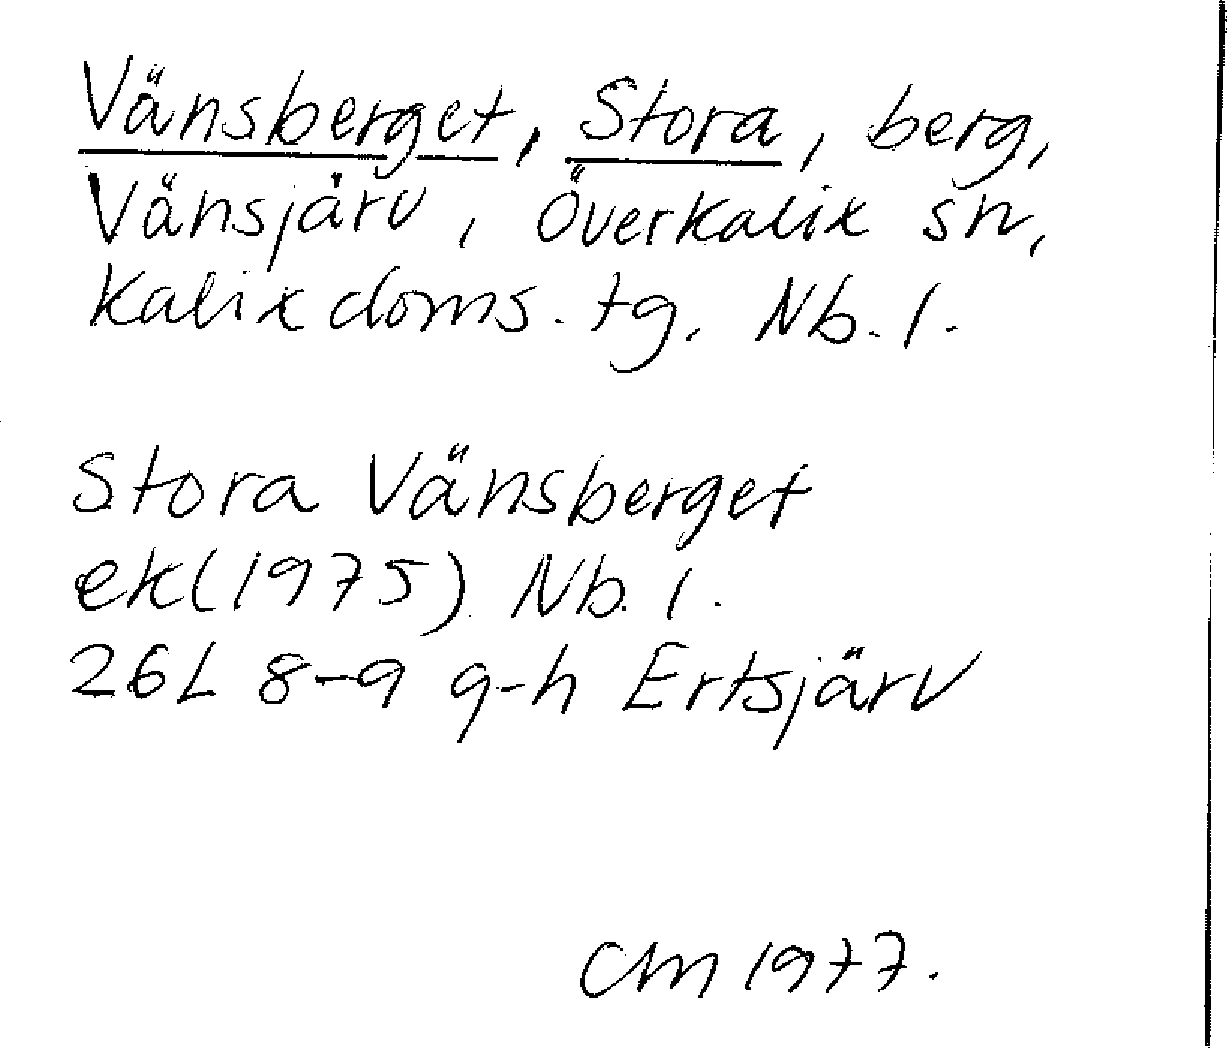 Vänsberget, Stora, berg,
Vänsjärv, Överkalix sn,
Kalix doms. tg. Nb. l.
Stora Vänsberget
ek (1975) Nb. l.
26L 8-9 g-h Ertsjärv
CM 1977.